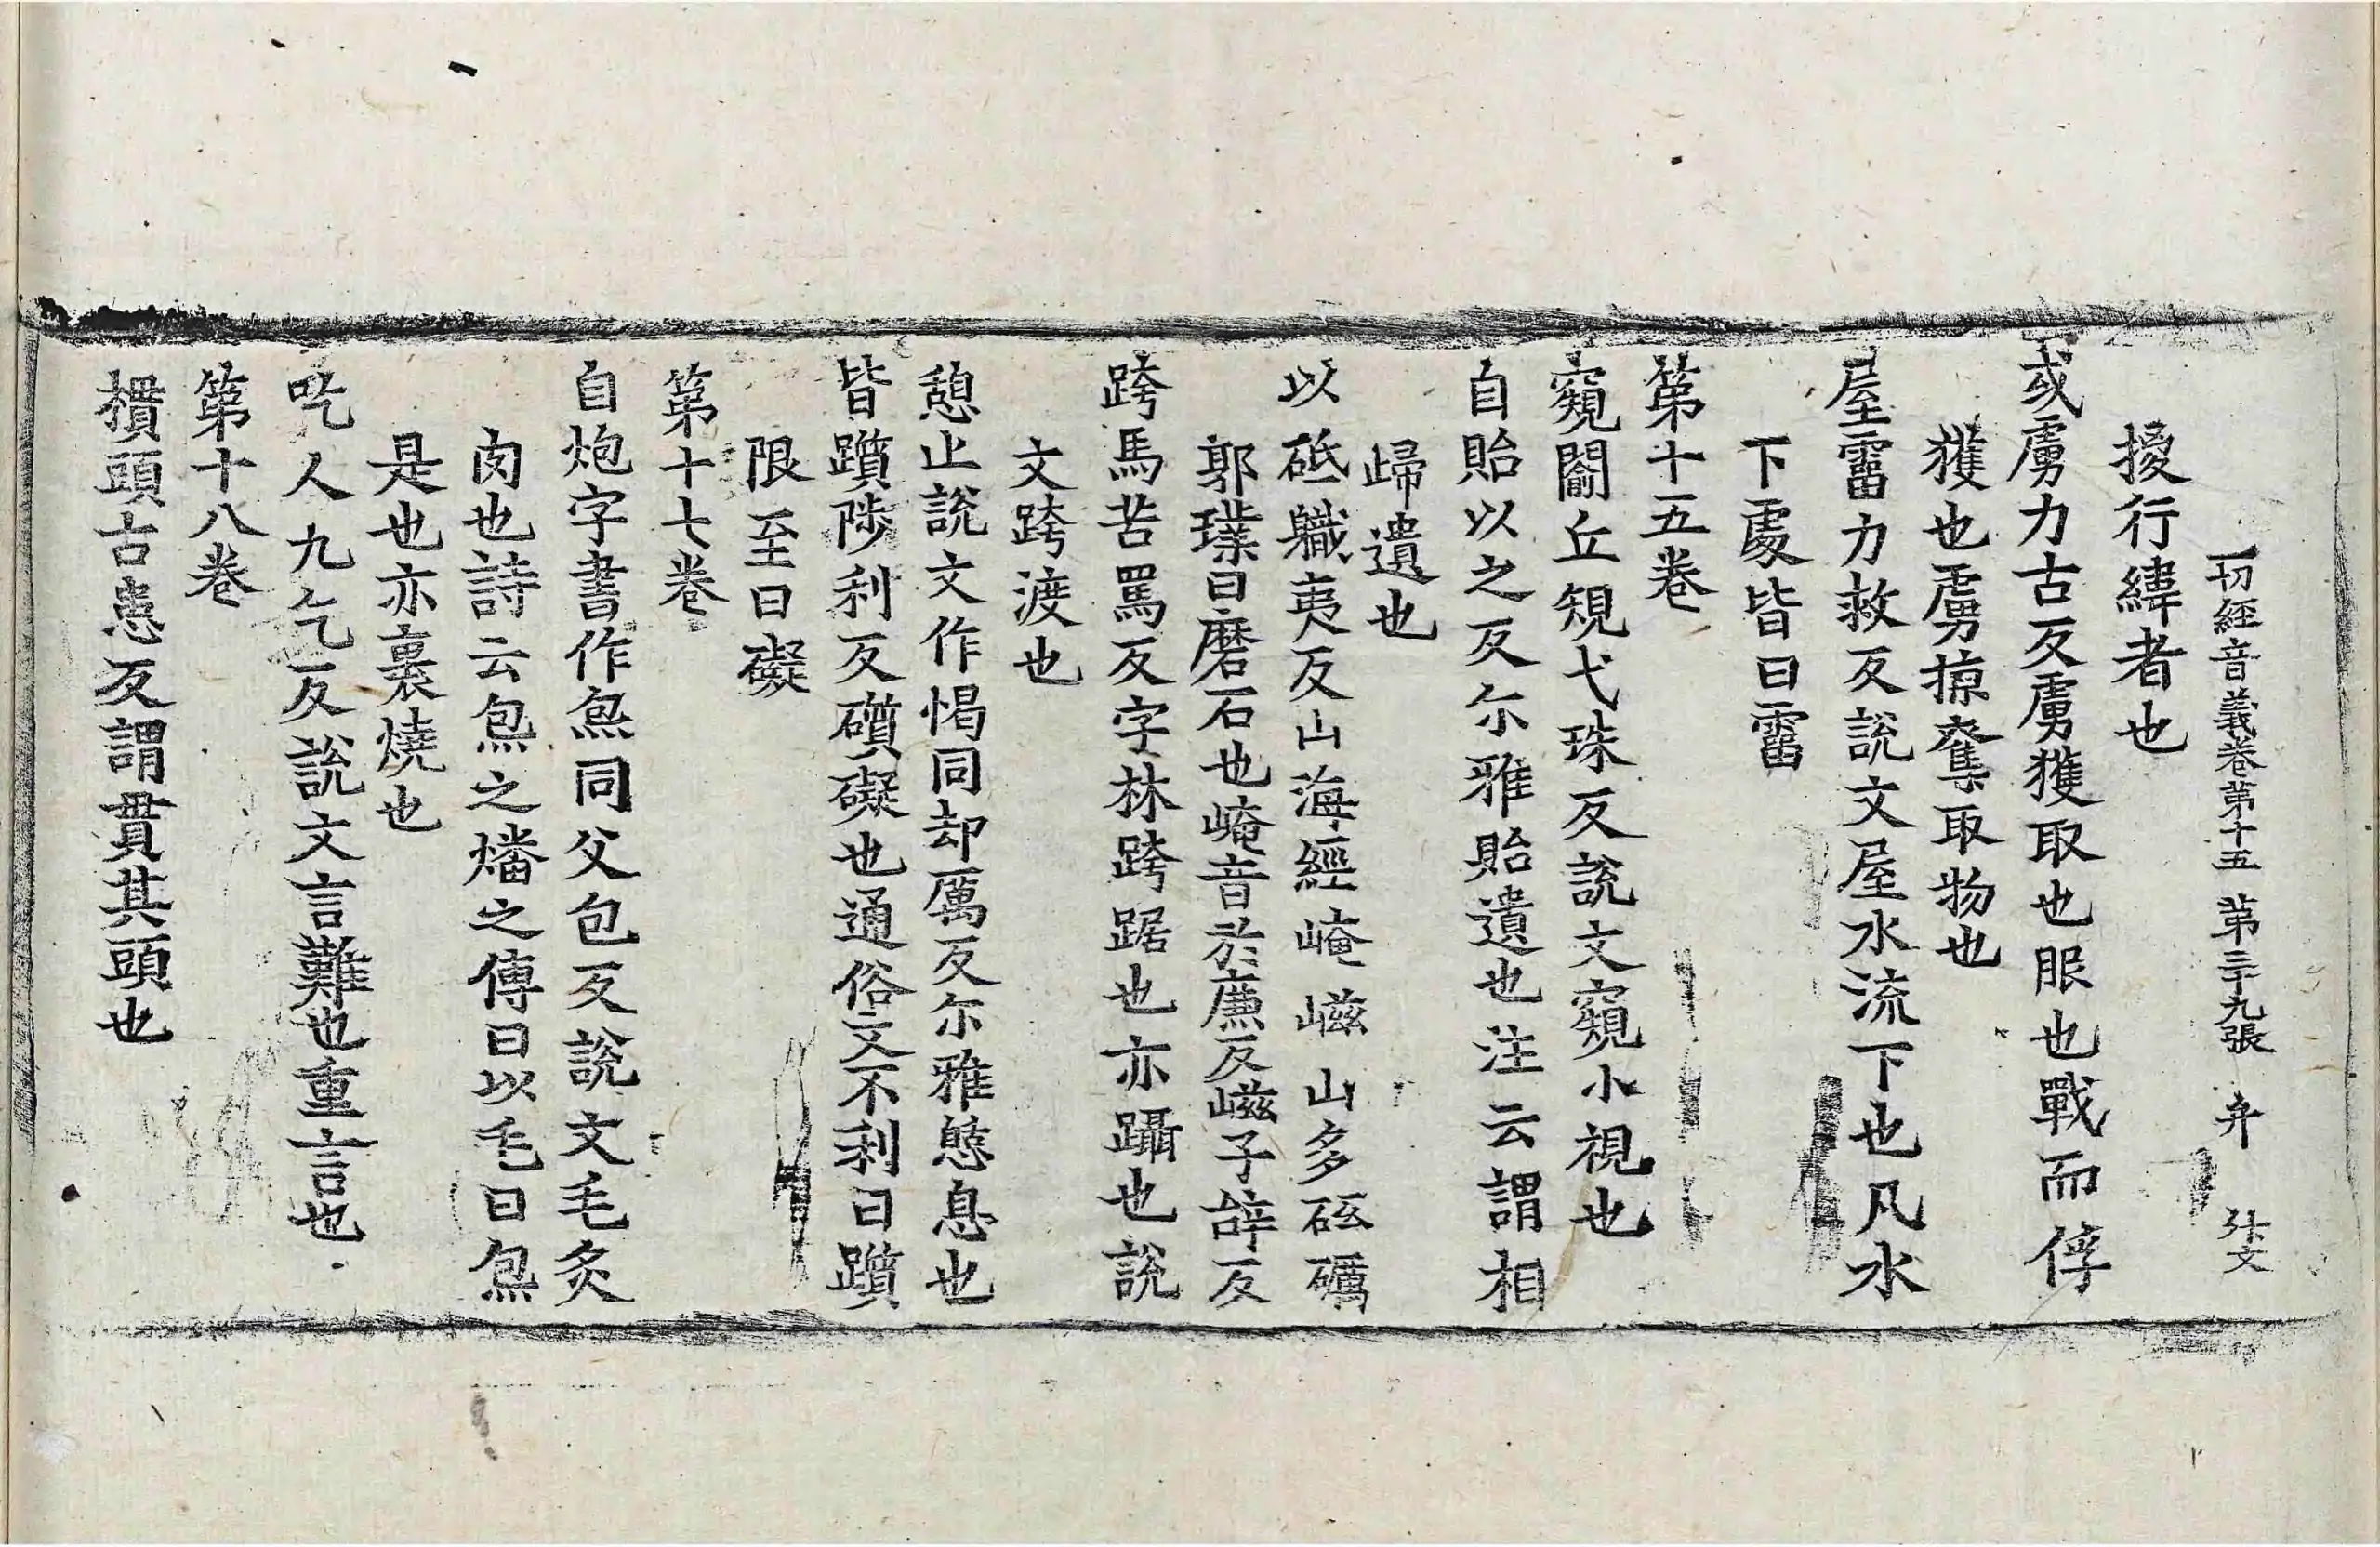 一切經音義卷第十五 第三十九張 弁 
擾行緯者也
或虜力古反虜獲取也服也戰而俘
獲也虜掠奪取物也
屋霤力救反說文屋水流下也凡水
下處皆曰霤
第十五卷
窺闚丘規弋珠反說文窺小視也
自貽以之反尒雅貽遺也注云謂相
歸遺也
以砥軄夷反山海經崦嵫山多砥礪
郭璞曰磨石也崦音於廉反嵫子辝反
跨馬苦罵反字林跨踞也亦躡也說
文跨渡也
憩止說文作愒同却厲反尒雅憩息也
皆躓陟利反礩礙也通俗文不利曰躓
限至曰礙
第十七卷
自炮字書作炰同父包反說文毛炙
肉也詩云炰之燔之傳曰以毛曰炰
是也亦裹燒也
吃人九乞反說文言難也重言也
第十八卷
摜頭古患反謂貫其頭也